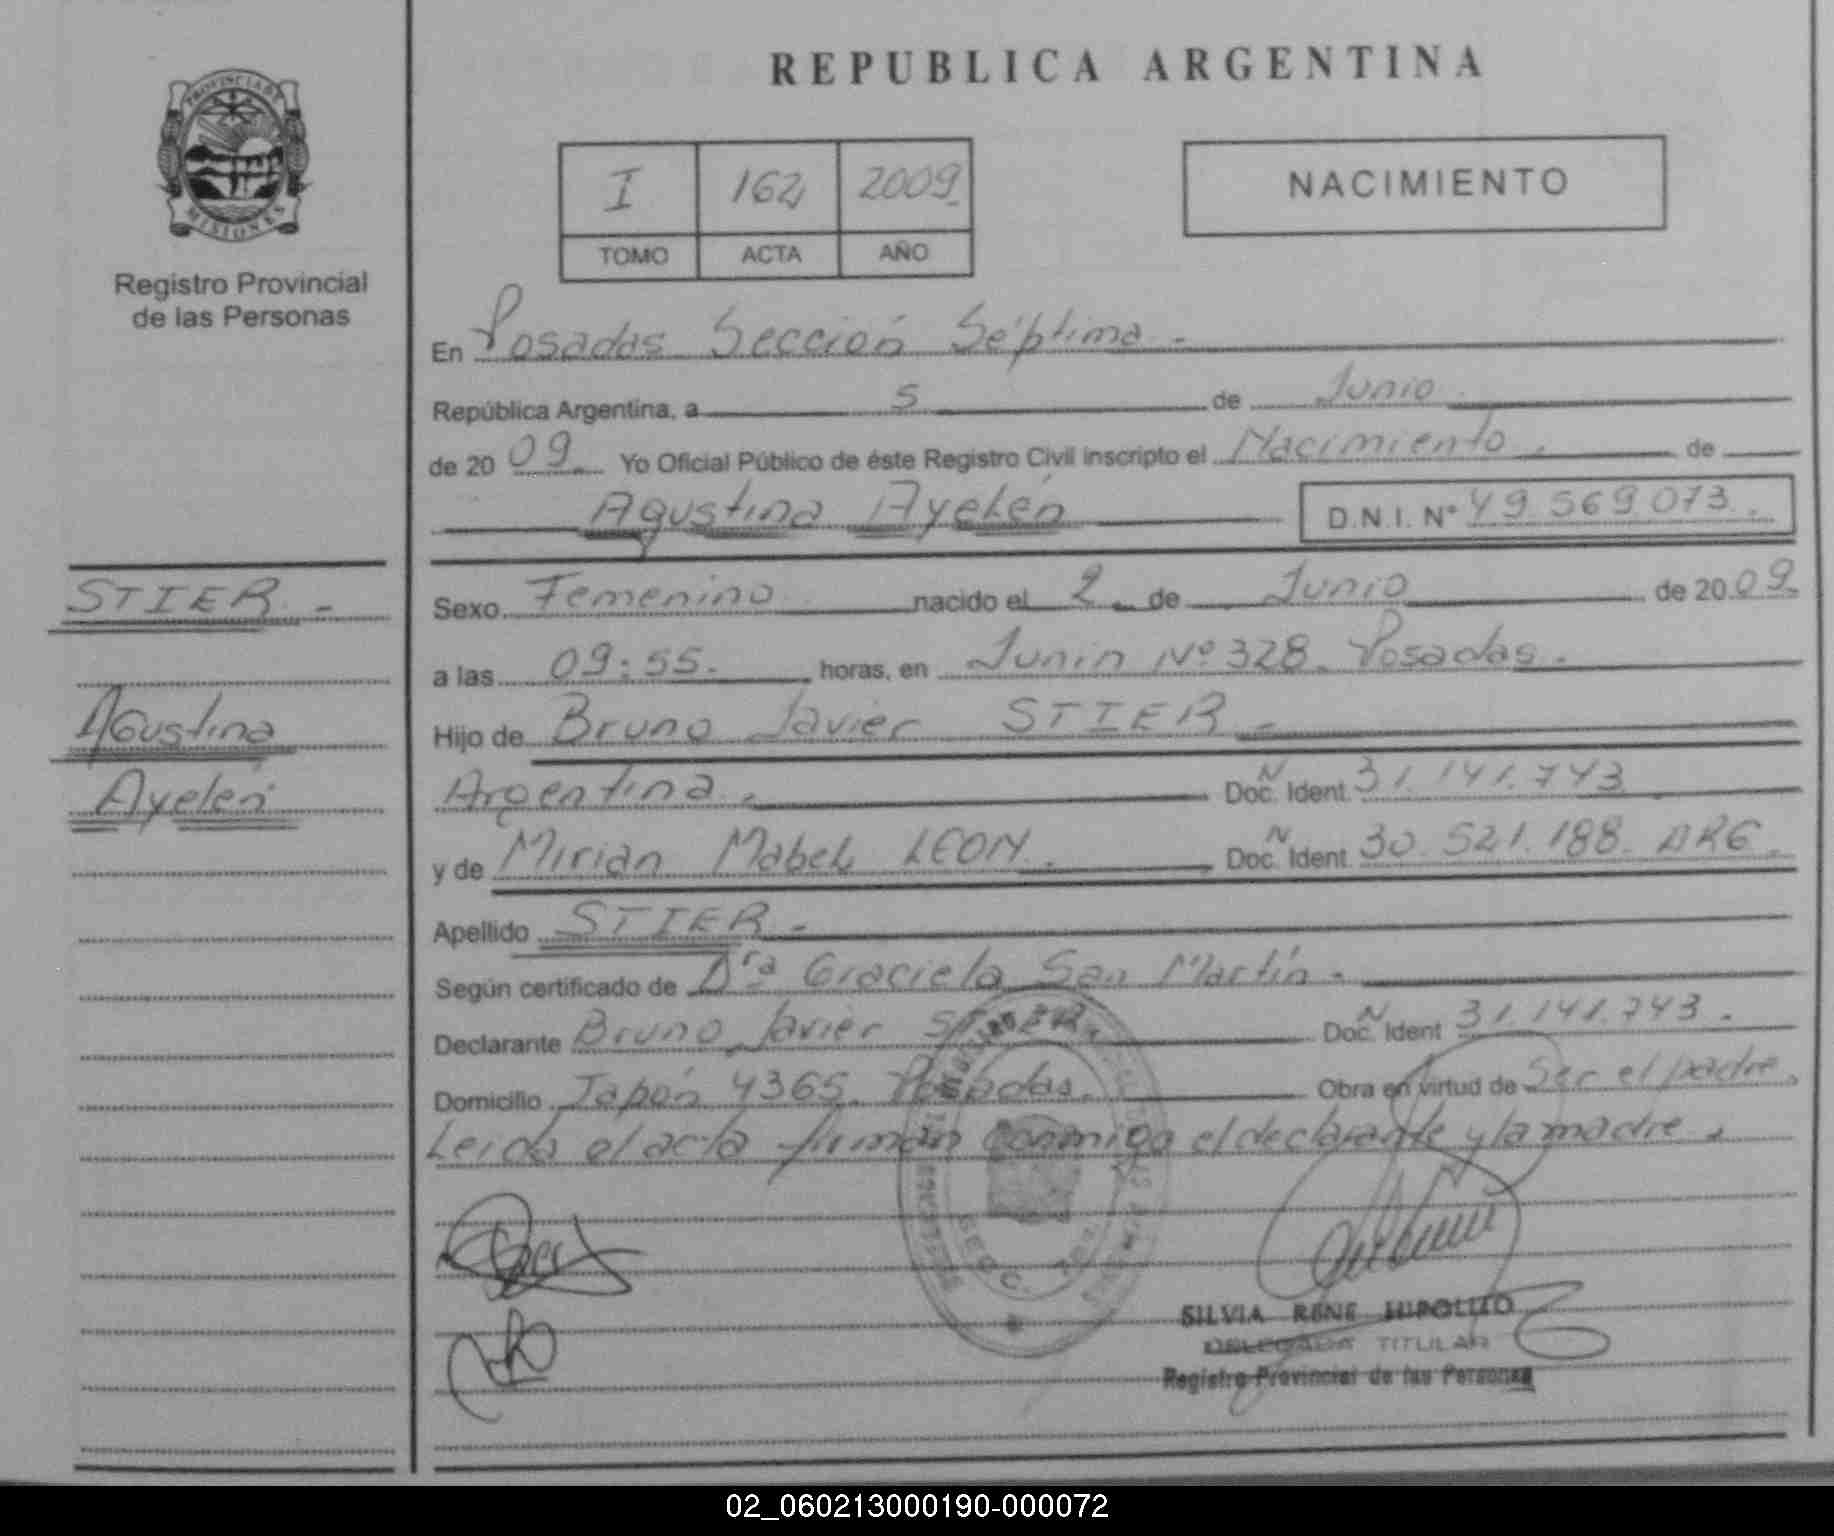 PROVINCIA DE
MISIONES
Registro Provincial
de las Personas
STIER -
Agustina
Ayelén
REPUBLICA ARGENTINA
I 162 2009
TOMO ACTA AÑO
NACIMIENTO
En Posadas Sección Séptima -
República Argentina, a 5 de Junio
de 20 09. Yo Oficial Público de éste Registro Civil inscripto el Nacimiento. de
Agustina Ayelén D.N.I. N° 49.569.073.
Sexo Femenino nacido el 2 de Junio de 20 09.
a las 09:55. horas, en Junin Nº 328. Posadas.
Hijo de Bruno Javier STIER -
Argentina. Doc. N Ident. 31.141.743
y de Mirian Mabel LEON. Doc. N Ident. 30.521.188. ARG.
Apellido STIER -
Según certificado de Dra Graciela San Martín.
Declarante Bruno Javier STIER Doc. N Ident 31.141.743.
Domicilio Japón 4365. Posadas. Obra en virtud de Ser el padre.
Leida el acta firman conmigo el declarante y la madre.
SECC.
SILVIA RENE HIPOLITO
DELEGADA TITULAR
Registro Provincial de las Personas
02_060213000190-000072